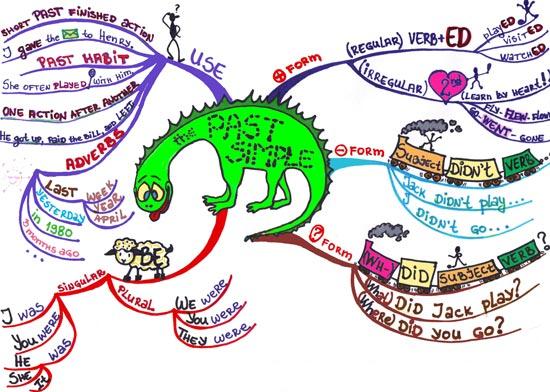 the PAST SIMPLE
USE
SHORT PAST FINISHED ACTION
I gave the to Henry.
PAST HABIT
She OFTEN PLAYED with him
ONE ACTION AFTER ANOTHER
He got up, paid the bill and left
ADVERBS
LAST WEEK
YEAR
APRIL
YESTERDAY
in 1980
3 months ago
...
+ FORM
(REGULAR) VERB+ED
playED
visitED
watchED
(IRREGULAR) 2nd (learn by heart!!)
FLY-FLEW-FLOWN
GO-WENT-GONE
- FORM
SUBJECT DIDN'T VERB
Jack didn't play...
I didn't go...
? FORM
(WH-) DID SUBJECT VERB ?
(Why) DID Jack play?
(Where) DID you go?
BE
SINGULAR
I was
You were
He was
She
It
PLURAL
We were
You were
They were